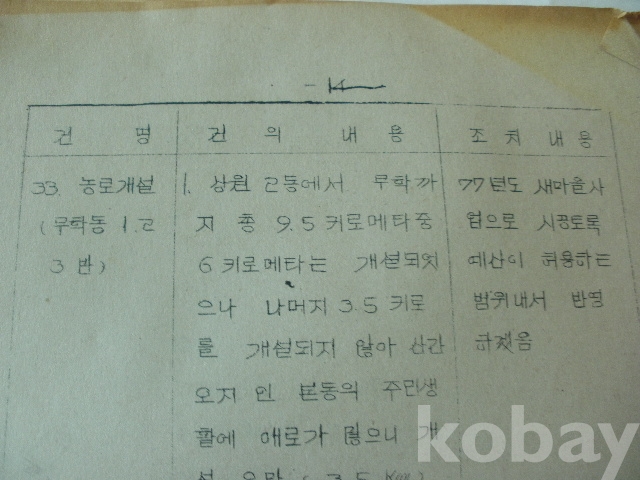 - 14 -
건 명 건 의 내 용 조 치 내 용
33. 농로개설 1. 상원 2동에서 무학까 77년도 새마을사
(무학동 1.2 지 총 9.5 키로메타중 업으로 시공토록
3 반) 6 키로메타는 개설되었 예산이 허용하는
으나 나머지 3.5 키로 범위내서 반영
를 개설되지 않아 산간 하겠음
오지 인 본동의 주민생
활에 애로가 많으니 개
설 요망 ( 3.5 Km)
kobay